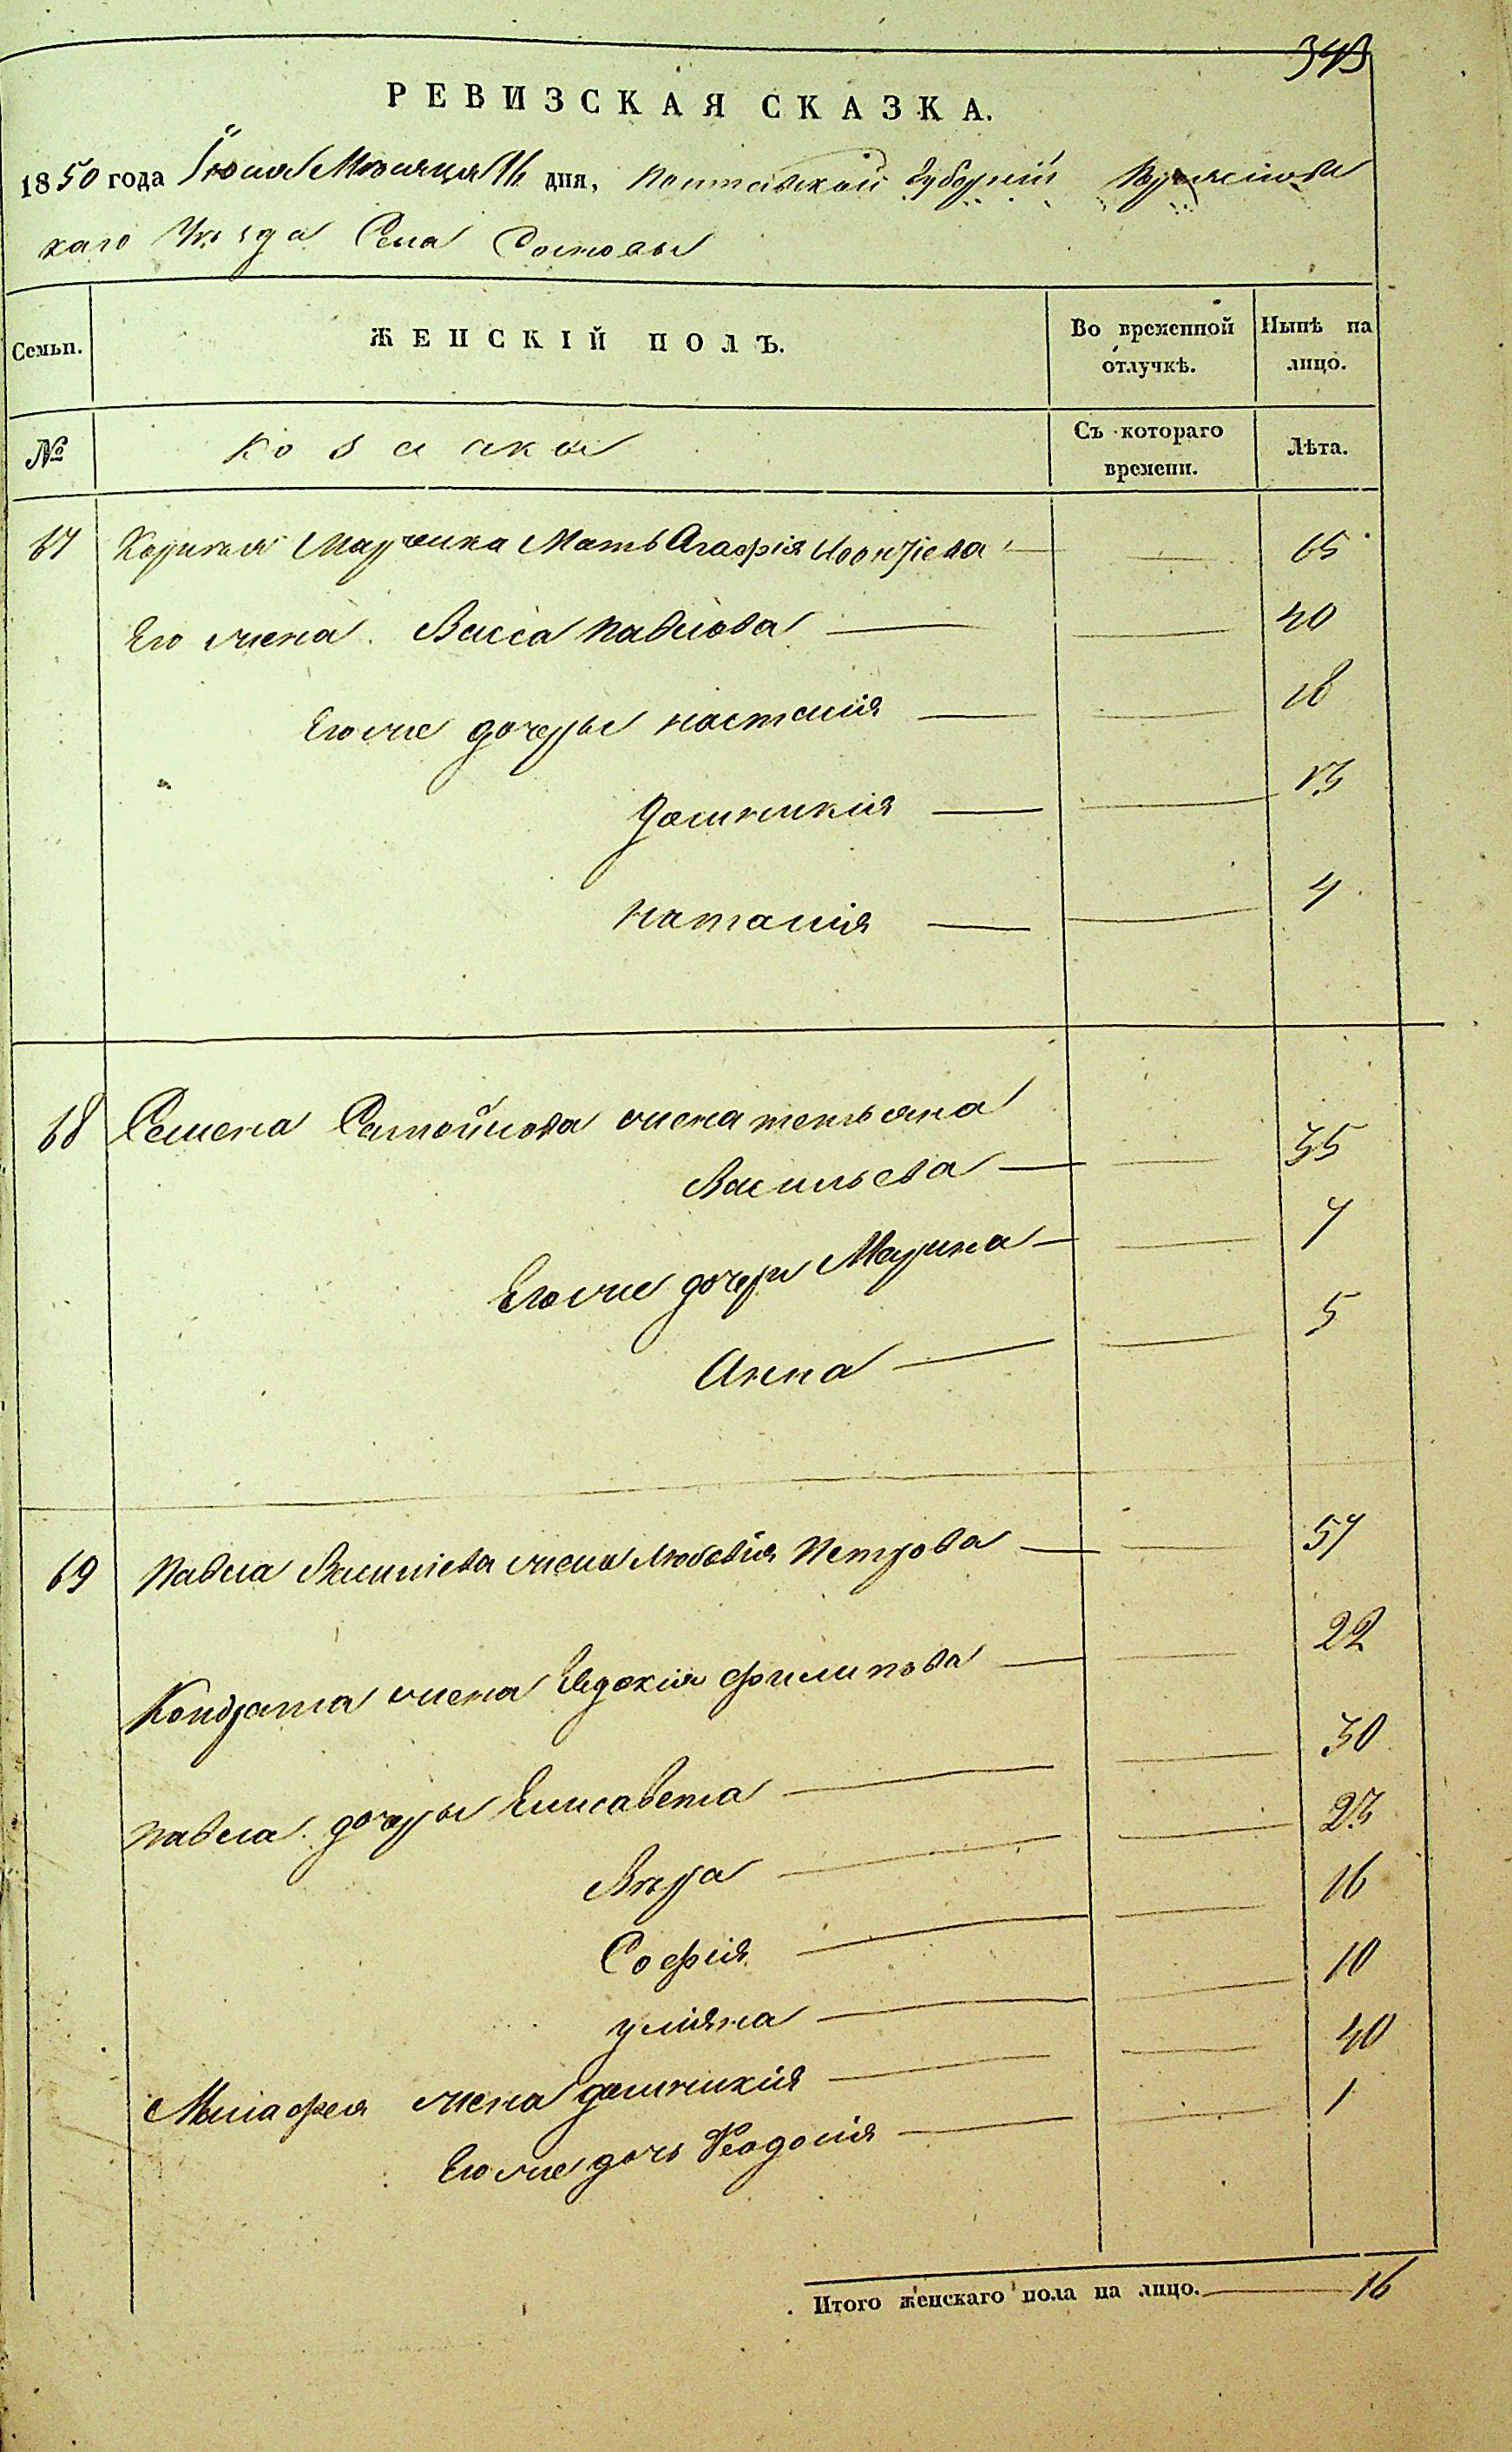 343
РЕВИЗСКАЯ СКАЗКА.
1850 года Іюля Месяца 16 дня, Полтавской Губерніи Переяслов
каго Уезда Села Сосновы
Семьи. ЖЕНСКІЙ ПОЛЪ. Во временной отлучкѣ. Нынѣ на лицо.
№ Козачки Съ котораго времени. Лѣта.
67 Корнилія Марченка Мать Агафія 65
Его жена Васса Павлова 40
Его же дочеры Настасія 18
Домникія 13
Наталія 4
68 Семена Самойлова жена Тетьяна
Васильева 35
Его же дочери Марина 7
Анна 5
69 Павла Василіева жена Любовія Петрова 57
Кондрата жена Евдокія Филипова 22
Павла дочеры Елисавета 30
Вѣра 23
Софія 16
Уліяна 10
жена Домникія 40
Его же дочь Феодосія 1
Итого женскаго пола на лицо. 16